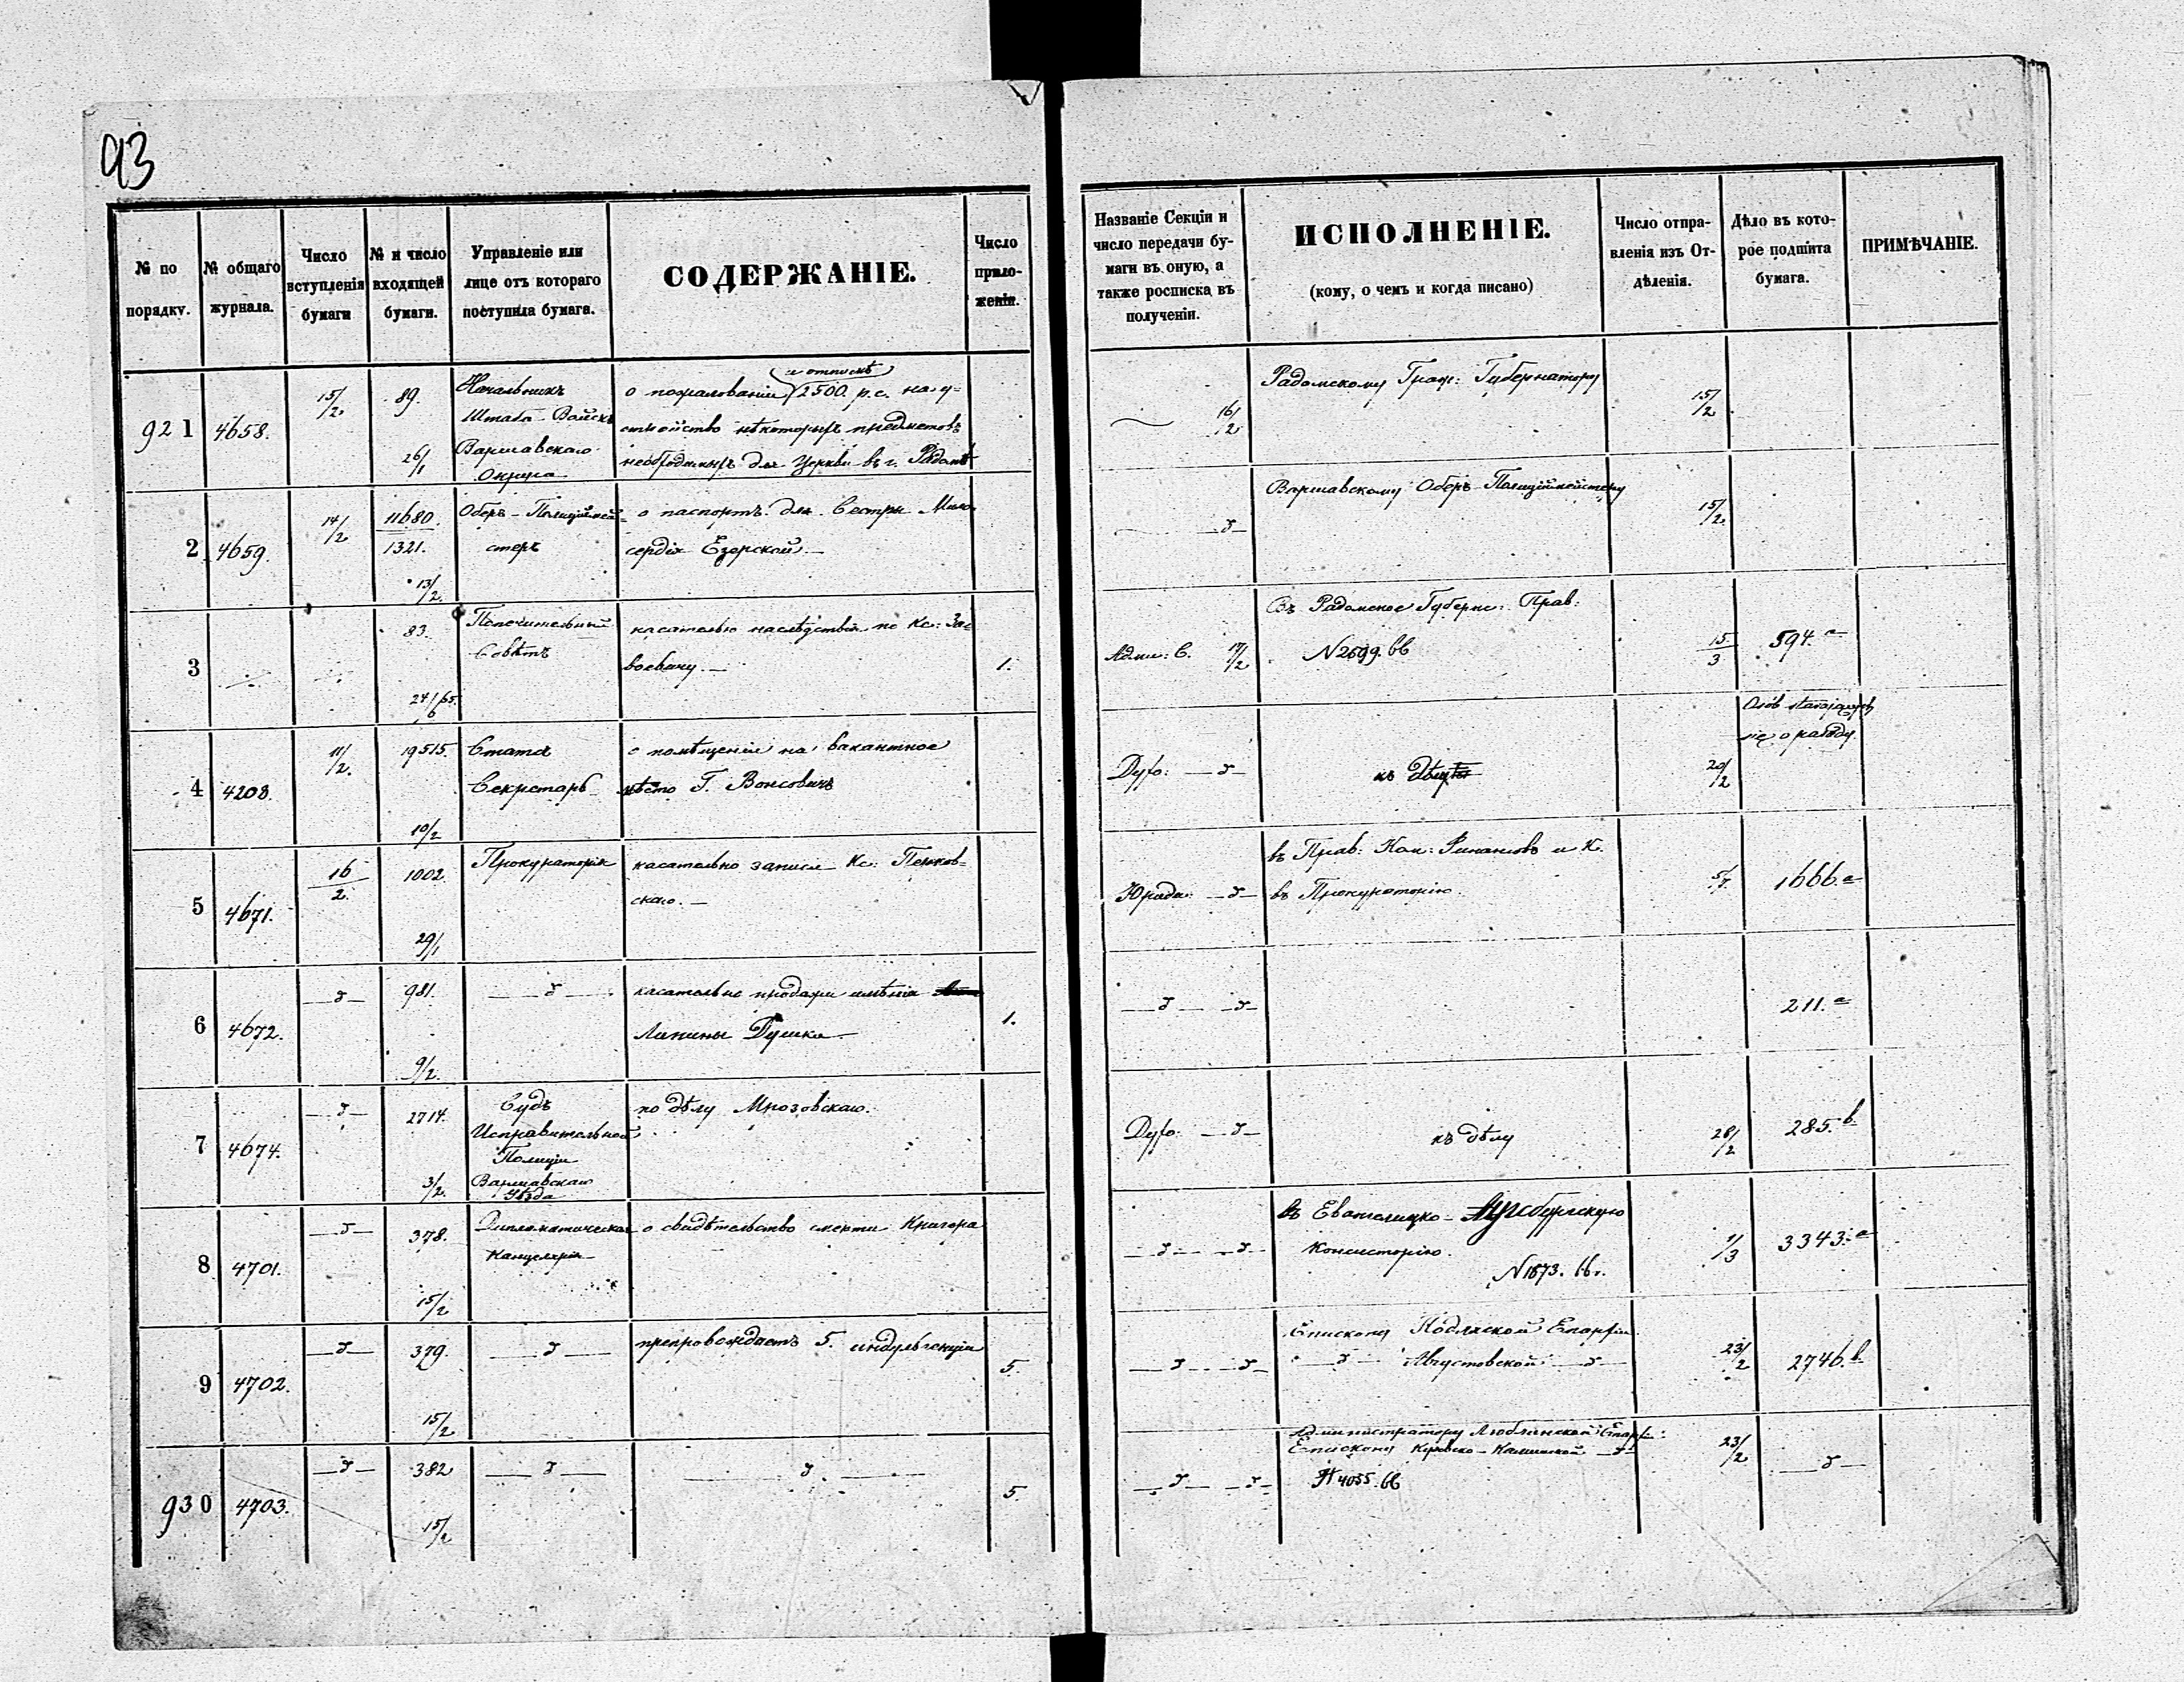 93
№ по порядку.
№ общаго журнала.
Число вступленія бумаги
№ и число входящей бумаги.
Управленіе или лице отъ котораго поступила бумага.
СОДЕРЖАНІЕ.
Число приложеній.
Названіе Секціи и число передачи бумаги въ оную, а также росписка въ полученіи.
ИСПОЛНЕНІЕ.
(кому, о чемъ и когда писано)
Число отправленія изъ Отдѣленія.
Дѣло въ которое подшита бумага.
ПРИМѢЧАНІЕ.
921
4658.
15/2
89.
26/1
Начальникъ
Штаба Войскъ
Варшавскаго
Округа
о пожалованіи 2500 р.с. на у-
стройство нѣкоторыхъ предметовъ
необходимыхъ для Церкви въ г. Радомѣ
16/2
Радомскому Граж: Губернатору
15/2
2
4659.
14/2
11680.
1321.
13/2.
Оберъ-Полиціймей-
стеръ
о паспортѣ для Сестры Мило-
сердія Езерской.—
—d—
Варшавскому Оберъ Полиціймейстеру
15/2.
3
83.
24/6 65.
Попечительный
Совѣтъ
касательно наслѣдства по Кс:
1.
Адми: С. 17/2
Въ Радомское Губерн: Прав:
N 2599. 66
15/3
594.a
4
4208.
11/2.
19515.
10/2
Статсъ
Секретарь
о помѣщеніи на вакантное
мѣсто Г. Вонсовичъ
—d—
къ дѣлу
20/2
5
4671.
16/2.
1002.
29/1
Прокураторія
касательно записи Кс: Пенков-
скаго.—
Юрид: —d—
въ Прав: Ком: Финансовъ и К.
въ Прокураторію.
1666.a
6
4672.
—d—
981.
9/2.
—d—
касательно продажи имѣнія
Липины
1.
—d— —d—
211.a
7
4674.
—d—
2714.
3/2.
Судъ
Исправительной
Полиціи
Варшавскаго
Уѣзда
по дѣлу Мрозовскаго.
—d—
къ дѣлу
28/2
285.b
8
4701.
—d—
378.
15/2
Дипломатическая
Канцелярія
о свидѣтельство смерти Кригера
—d— —d—
въ Евангелицко-Аугсбургскую
Консисторію.
N 1873. 66 г.
1/3
3343.a
9
4702.
—d—
379.
15/2
—d—
препровождаетъ 5. индульгенціи
5.
—d— —d—
Епископу Подляской Епархіи.
—d— Августовской —d—
23/2
2746.b
930
4703.
—d—
382
15/2
—d—
—d—
5.
—d— —d—
Администратору Люблинской Епарх:
Епископу Куявско-Калишской —d—
N 4055. 66
23/2
—d—